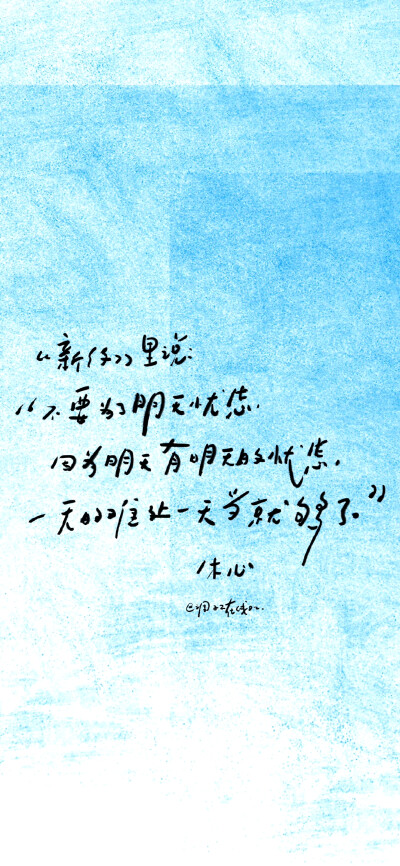 《新约》里说:
“不要为了明天忧虑.
因为明天有明天的忧虑.
一天的难处一天当就够了。”
/木心